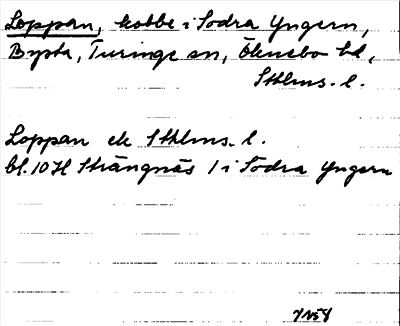 Loppan, kobbe i Södra Yngern,
Bysta, Turinge sn, Öknebo hd,
Sthlms. l.
Loppan ek Sthlms. l.
bl. 10 H Strängnäs / i Södra Yngern